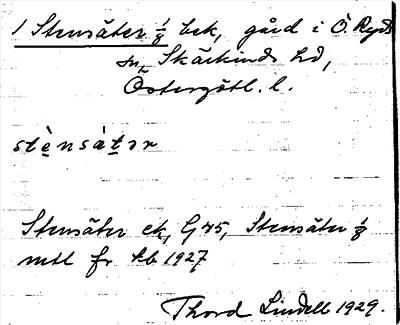 1 Stensäter ½ bek, gård i Ö. Ryds
sn, Skärkinds hd,
Östergötl. l.
stènsàtər
Stensäter ek, G 45, Stensäter ½
mtl fr kb 1927
Thord Lindell 1929.